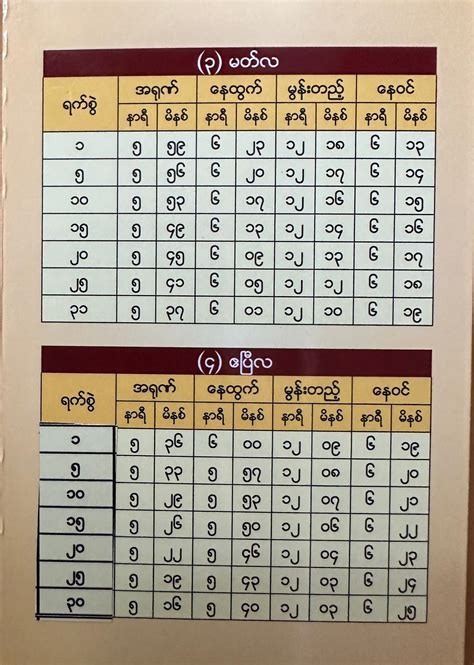 (၃) မတ်လ
ရက်စွဲ အရုဏ် နေထွက် မွန်းတည့် နေဝင်
နာရီ မိနစ် နာရီ မိနစ် နာရီ မိနစ် နာရီ မိနစ်
၁ ၅ ၅၉ ၆ ၂၃ ၁၂ ၁၈ ၆ ၁၃
၅ ၅ ၅၆ ၆ ၂၀ ၁၂ ၁၇ ၆ ၁၄
၁၀ ၅ ၅၃ ၆ ၁၇ ၁၂ ၁၆ ၆ ၁၅
၁၅ ၅ ၄၉ ၆ ၁၃ ၁၂ ၁၄ ၆ ၁၆
၂၀ ၅ ၄၅ ၆ ၀၉ ၁၂ ၁၃ ၆ ၁၇
၂၅ ၅ ၄၁ ၆ ၀၅ ၁၂ ၁၂ ၆ ၁၈
၃၁ ၅ ၃၇ ၆ ၀၁ ၁၂ ၁၀ ၆ ၁၉
(၄) ဧပြီလ
ရက်စွဲ အရုဏ် နေထွက် မွန်းတည့် နေဝင်
နာရီ မိနစ် နာရီ မိနစ် နာရီ မိနစ် နာရီ မိနစ်
၁ ၅ ၃၆ ၆ ၀၀ ၁၂ ၀၉ ၆ ၁၉
၅ ၅ ၃၃ ၅ ၅၇ ၁၂ ၀၈ ၆ ၂၀
၁၀ ၅ ၂၉ ၅ ၅၃ ၁၂ ၀၇ ၆ ၂၁
၁၅ ၅ ၂၆ ၅ ၅၀ ၁၂ ၀၆ ၆ ၂၂
၂၀ ၅ ၂၂ ၅ ၄၆ ၁၂ ၀၄ ၆ ၂၃
၂၅ ၅ ၁၉ ၅ ၄၃ ၁၂ ၀၃ ၆ ၂၄
၃၀ ၅ ၁၆ ၅ ၄၀ ၁၂ ၀၃ ၆ ၂၅